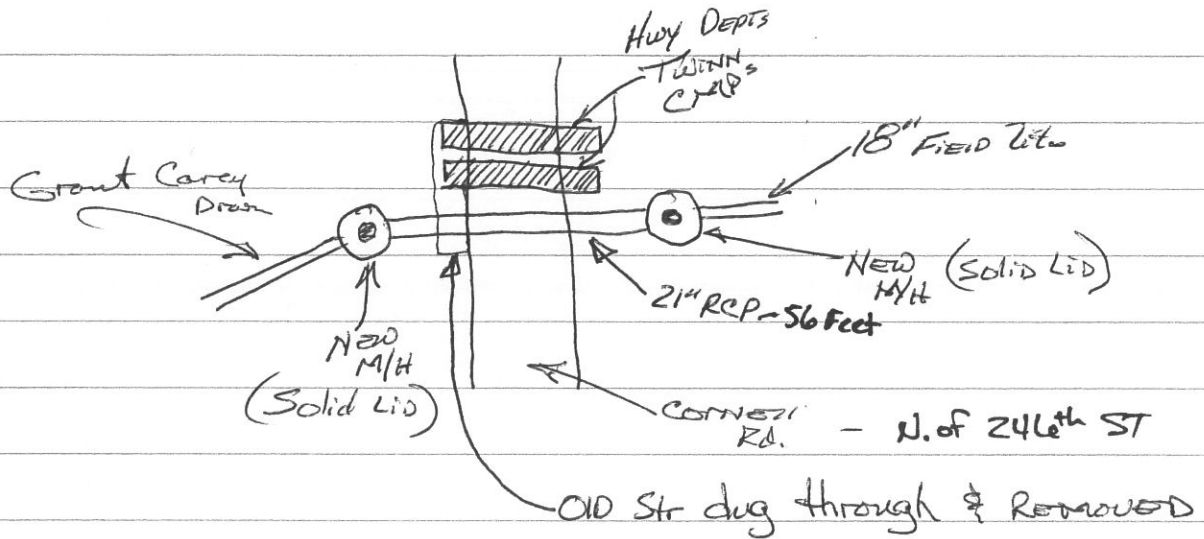 Hwy Depts
Twinn
CMPs
18" Field Tile
Grant Carey
Drain
New
M/H
(Solid Lid)
21" RCP - 56 Feet
New
M/H
(Solid Lid)
Rd. - N. of 246th ST
Old Str dug through & Removed